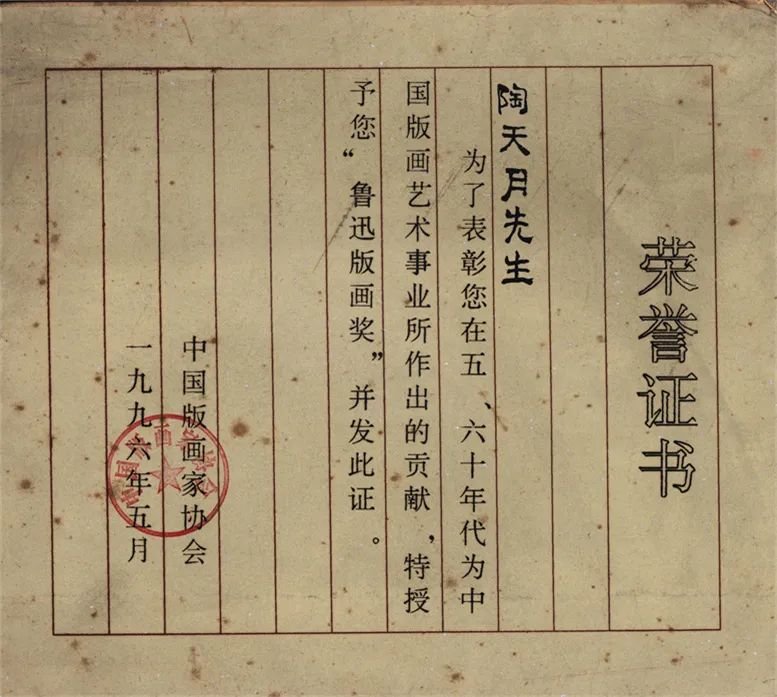 荣誉证书
陶天月先生
为了表彰您在五、六十年代为中
国版画艺术事业所作出的贡献,特授
予您“鲁迅版画奖”并发此证。
中国版画家协会
一九九六年五月
中国版画家协会